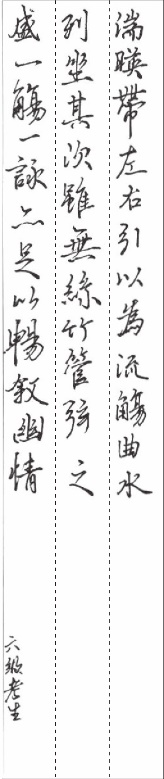 湍暎帶左右引以為流觴曲水
列坐其次雖無絲竹管弦之
盛一觴一詠亦足以暢敘幽情
六級考生